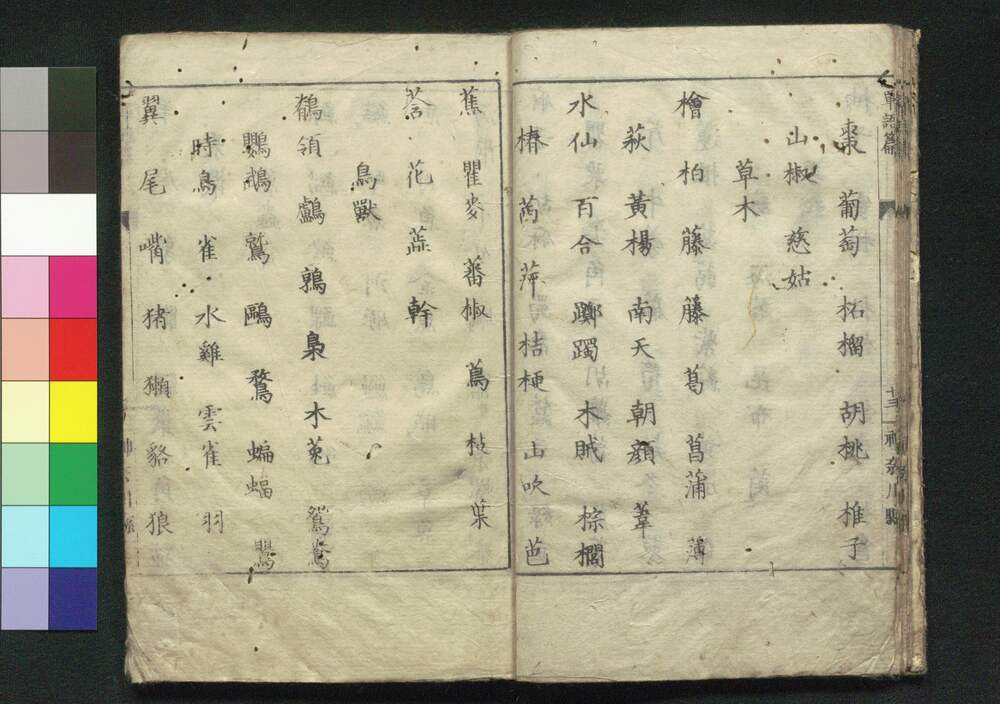 單語篇
十三 神奈川縣
棗 葡萄 柘榴 胡桃 椎子
山椒 慈姑
草木
檜 柏 藤 藤 葛 菖蒲 薄
萩 黄楊 南天 朝顔 葦
水仙 百合 躑躅 木賊 棕櫚
椿 萍 桔梗 山吹 芭
蕉 瞿麥 蕃椒 蔦 枝 葉
莟 花 蕋 幹
鳥獸
鶺領 鸕 鶉 梟 木菟 鴛鴦
鸚鵡 鷲 鷗 鶩 蝙蝠
時鳥 雀 水雞 雲雀 羽
翼 尾 嘴 猪 獺 貉 狼